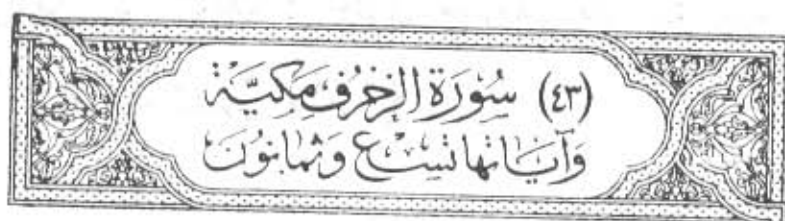 (٤٣) سُورَة الزخرُف مَكيَّة
وَآيَاتهَا تسْع وَثمَانونَ